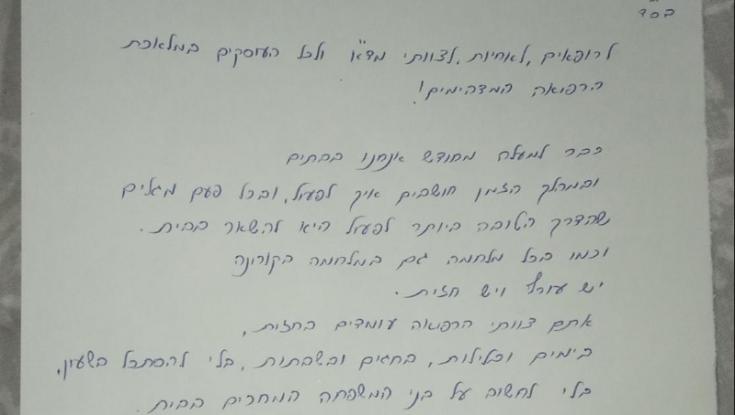 בס"ד
לרופאים, לאחיות, לצוותי מד"א ולכל העוסקים במלאכת
הרפואה המדהימים!
כבר למעלה מחודש אנחנו בבתים
ובמהלך הזמן חושבים איך לפעול, ובכל פעם מגלים
שהדרך הטובה ביותר לפעול היא להשאר בבית.
וכמו בכל מלחמה גם במלחמה בקורונה
יש עורף ויש חזית.
אתם צוותי הרפואה עומדים בחזית,
בימים ובלילות, בחגים ובשבתות, בלי להסתכל בשעון,
בלי לחשוב על בני המשפחה המחכים בבית.